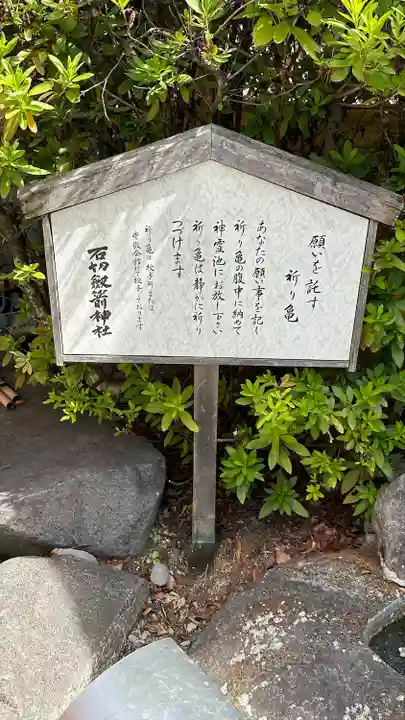 願いを託す
祈り亀
あなたの願い事を記し
祈り亀の腹中に納めて
神霊池にお放し下さい
祈り亀は静かに祈り
つづけます
祈り亀は 授与所または
崇敬会館にて授与しております
石切劔箭神社